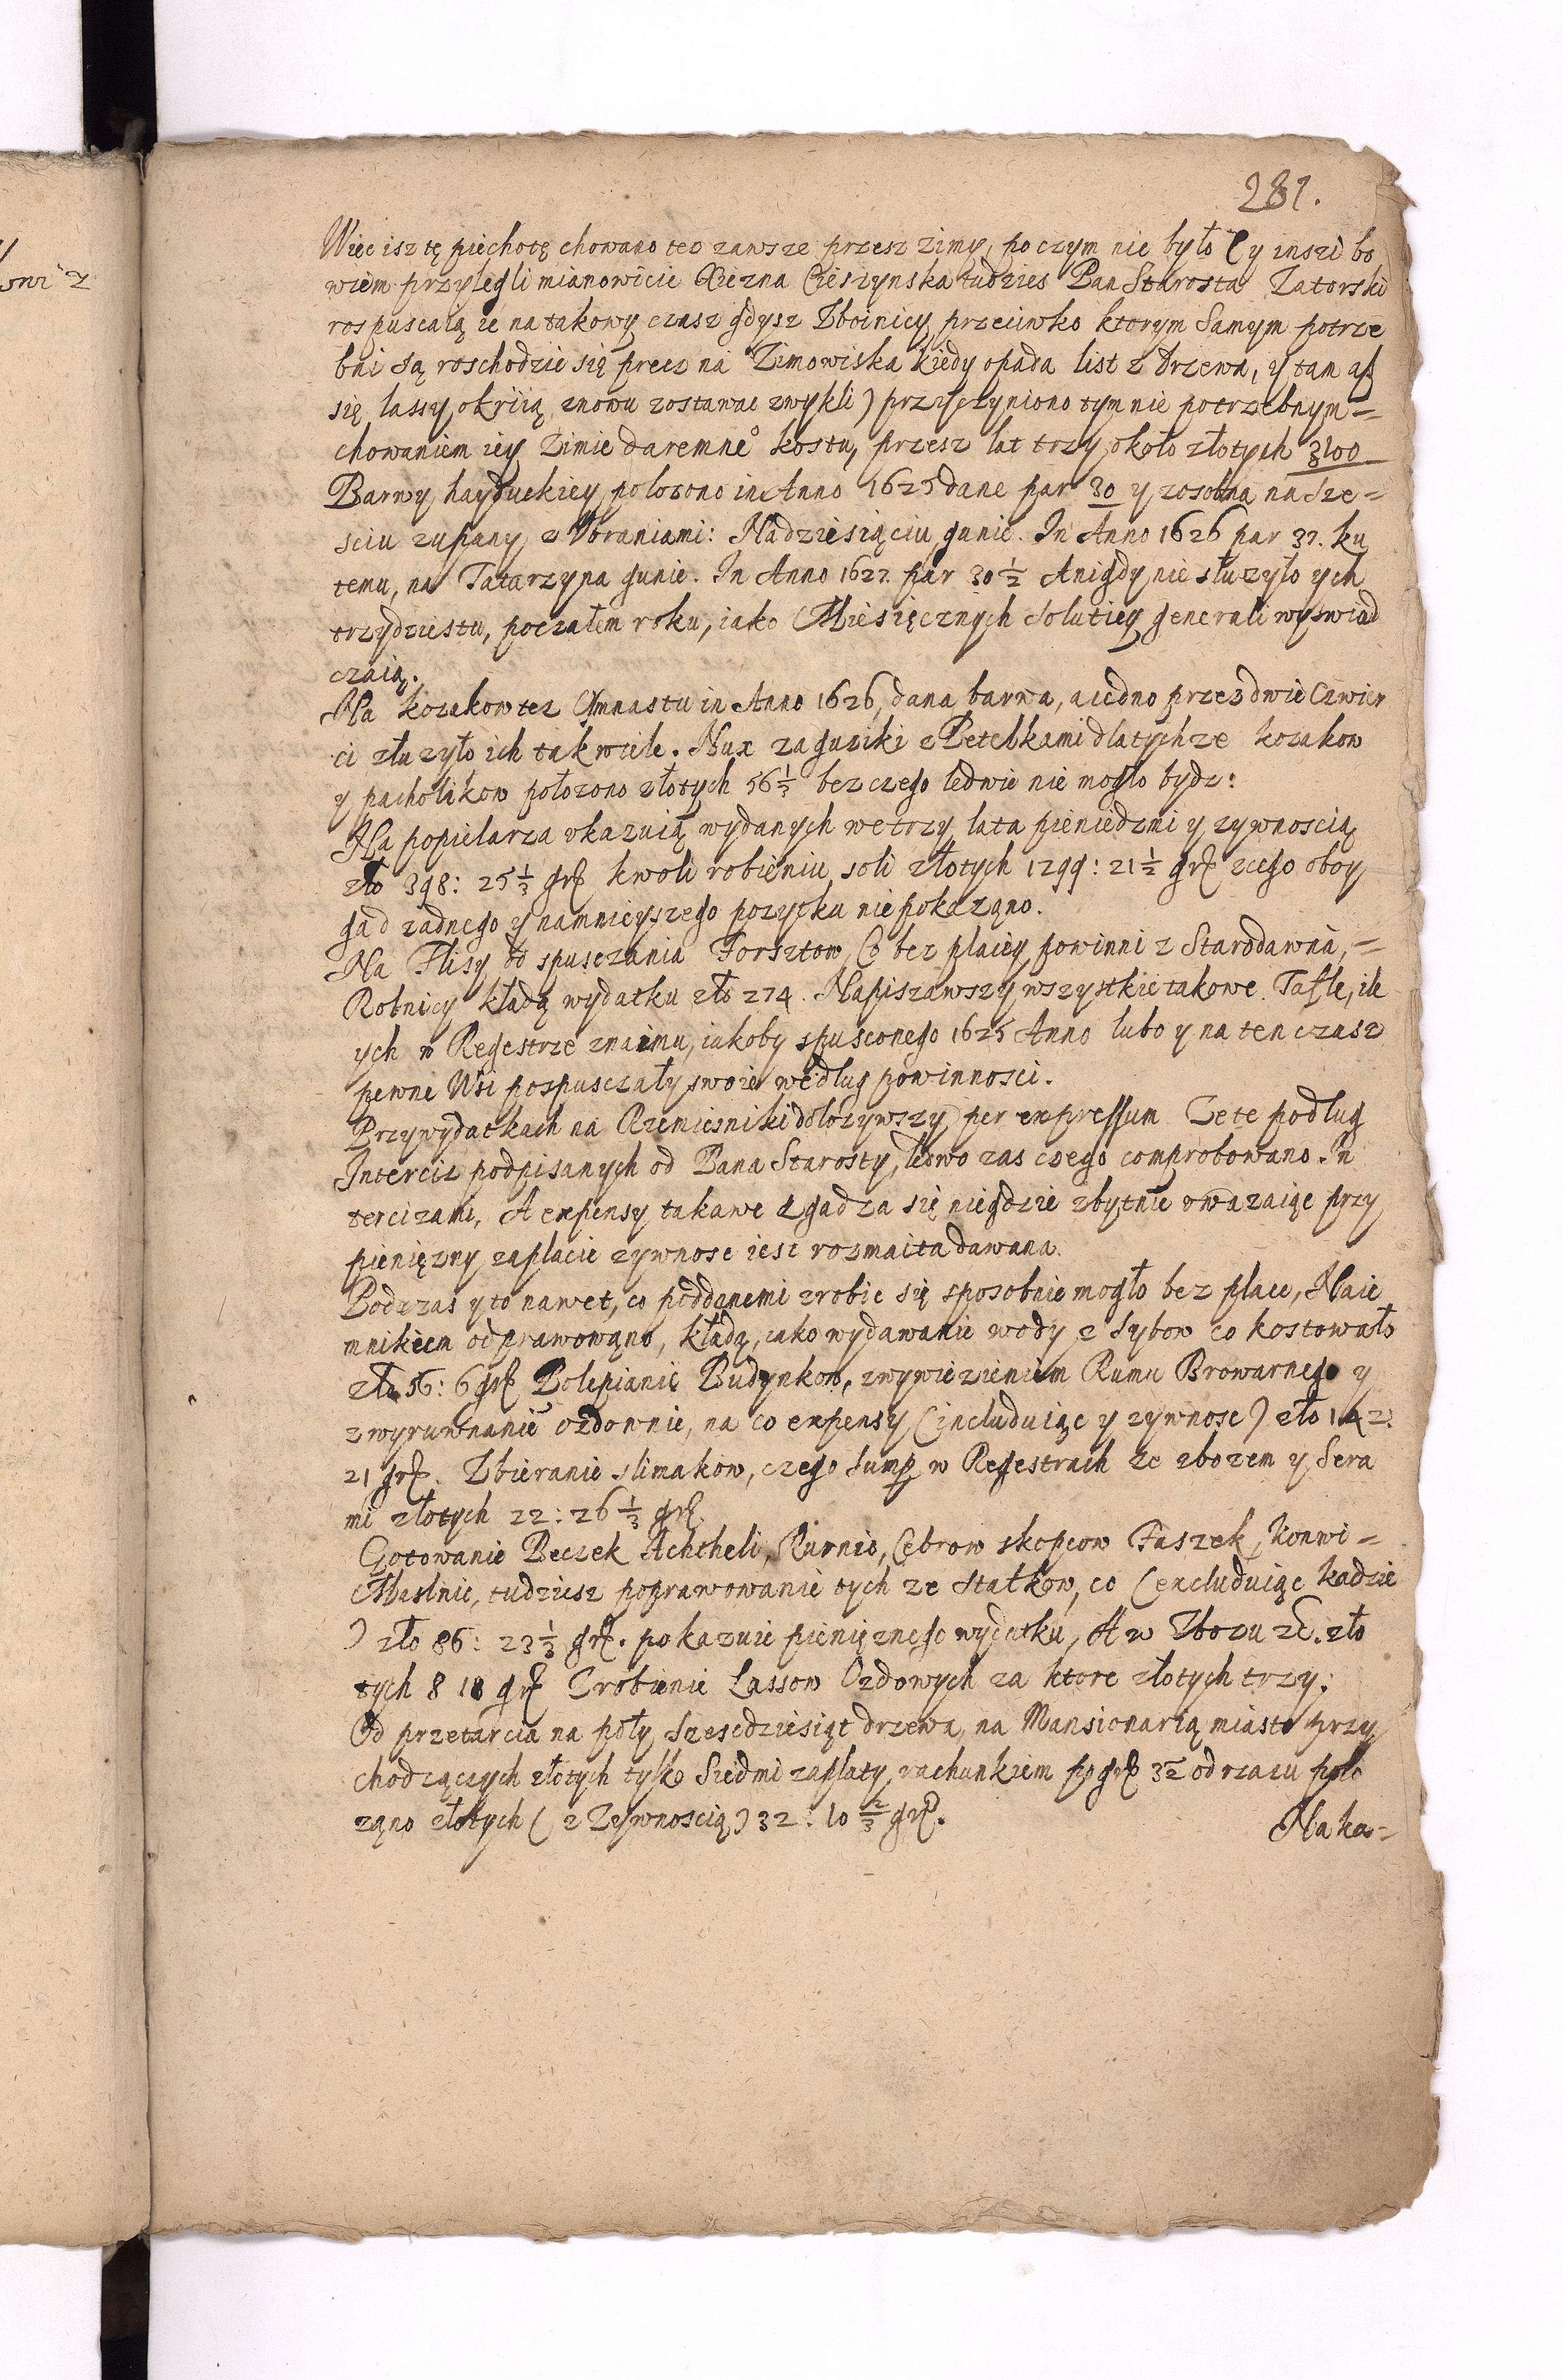 281.
Wiec isz tę piechotę chowano tez zawsze przesz zimy, po czym nie było (y inszi bo
wiem przylegli mianowicie Xiezna Cieszynska tudzies Pan Starosta Zatorski
rospuscaią ie na takowy czasz gdysz Zboinicy przeciwko ktorym Samym potrze
bni są roschodzie się precz na Zimowiska kiedy opada list z drzewa, y tam asz
się lassy okriią znowu zostawac zwykli) przyczyniono tym nie potrzebnym =
chowaniem iey Zimie daremne° kostu, przesz lat trzy około złotych 3100
Barwy hayduckiey polozono in Anno 1625 dane par 30 y zosobna na Sze=
sciu zupany z Vbraniami: Na dziesiąciu gunie. In Anno 1626 par 37. ku
temu, na Tatarzyna gunie. In Anno 1627. par 30 1/2 A nigdy nie słuzyło ych
trzydziestu, poczałem roku, iako Miesięcznych Solutiey generali wyswiad
czaią.
Na kozakow tez Osmnastu in Anno 1626, dana barwa, a iedno przez dwie Czwier
ci słuzyło ich tak wiele. Nux za guziki z Petelkami dla tychze kozakow
y pacholikow połozono złotych 56 1/3 bez czego ledwie nie mogło bydz:
Na popielarza vkazuią wydanych we trzy lata pieniedzmi y zywnoscią
zło 398: 25 1/3 gr kwoli robieniu soli złotych 1299: 21 1/2 gr zcego oboy
ga d zadnego y namnieyszego pozytku nie pokaząno.
Na Flisy od spusczania Forsztow, Co bez płacey powinni z Starodawna, =
Robnicy kładą wydatku zło 274. Napiszawszy wszystkie takowe Tafle, ile
ych w Regestrze znaimu, iakoby spusconego 1625 Anno lubo y na ten czasz
pewne Wsi pospusczały swoie według powinnosci.
Przy wydatkach na Rzemiesniki dołozywszy per expressum Cete podług
Intercis podpisanych od Pana Starosty, ledwo zas czego comprobowano. In
tercizami, A expensy takawe zgadza się niegdzie zbytnie vwazaiąc przy
pieniężny zaplacie zywnosc iest rozmaita dawana.
Podczas y to nawet, co poddanemi zrobic się sposobnie mogło bez płace, Naie
mnikiem odprawowąno, kładą, iako wydawanie wody z Sybow co kostowało
zło 56: 6 gr Polepianie Budynkow, zwywiezieniem Rumu Browarnego y
zwyruwnanie ozdownie, na co expensy (includuiąc y zywnosc) zło 142.
21 gr. Zbieranie slimakow, czego sump w Regestrach ze zbozem y Sera
mi złotych 22: 26 1/3 gr.
Gotowanie Beczek Achtheli, Rurnic, Cebrow skopcow Faszek, konwi=
Maslnic, tudziesz poprawowanie tych ze Statkow, co (excluduiąc kadzie
) zło 86: 23 1/3 gr. pokazuie pieniężnego wydatku, A w Zbozu &c. zło
tych 8 18 gr Crobienie Lassow Ozdowych za ktore złotych trzy:
Od przetarcia na poły Szescdziesiąt drzewa, na Mansionarią miasto przy
chodzączych złotych tylko Siedmi zapłaty, rachunkiem po gr 3 1/2 od rzazu poło
ząno złotych (z Zywnoscią) 32: 10 2/3 gr.
Na ka=